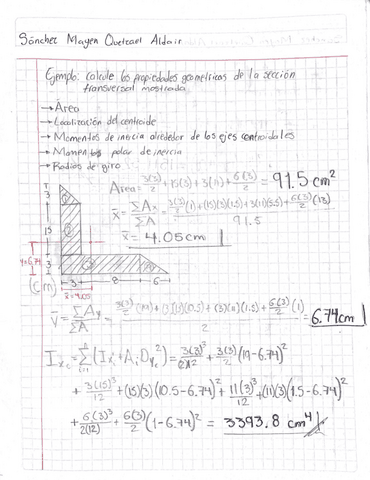 Sánchez Mayen Quetcael Aldair
Ejemplo: calcule las propiedades geometricas de la sección
transversal mostrada
→ Área
→ Localización del centroide
→ Momentos de inercia alrededor de los ejes centroidales
→ Momento polar de inercia
→ Radios de giro
Area = 3(3)/2 + 15(3) + 3(11) + 6(3)/2 = 91.5 cm²
x̄ = ΣAx/ΣA = 3(3)/2 (1) + (15)(3)(1.5) + 3(11)(5.5) + 6(3)/2 (13) / 91.5
x̄ = 4.05cm
3
15
3
ȳ=6.74
(cm)
3 8 6
x̄=4.05
ȳ = ΣAy/ΣA = 3(3)/2 (19) + (3)(15)(10.5) + (3)(11)(1.5) + 6(3)/2 (1) = 6.74cm
Ixc = Σ (Ix + Ai Dyc²) = 3(3)³/2(12) + 3(3)/2 (19-6.74)²
+ 3(15)³/12 + (15)(3)(10.5-6.74)² + 11(3)³/12 + (11)(3)(1.5-6.74)²
+ 6(3)³/2(12) + 6(3)/2 (1-6.74)² = 3393.8 cm⁴